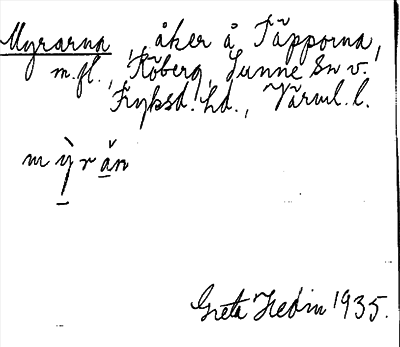 Myrarna, åker å Täpporna,
m.fl., Röberg, Sunne sn v.
Fryksd. hd., Värml. l.
mỳrǎn
Greta Hedin 1935.